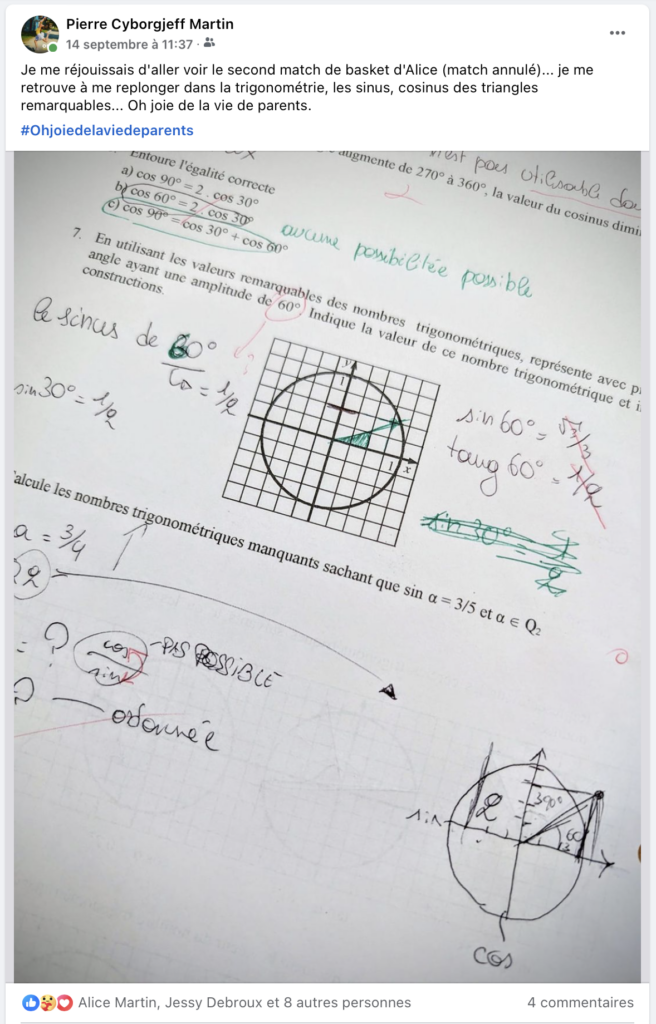 Pierre Cyborgjeff Martin
14 septembre à 11:37
Je me réjouissais d'aller voir le second match de basket d'Alice (match annulé)... je me
retrouve à me replonger dans la trigonométrie, les sinus, cosinus des triangles
remarquables... Oh joie de la vie de parents.
#Ohjoiedelaviedeparents
n'est pas utilisable
augmente de 270° à 360°, la valeur du cosinus dimi
Entoure l'égalité correcte
a) cos 90° = 2 . cos 30°
b) cos 60° = 2 . cos 30°
c) cos 90° = cos 30° + cos 60°
aucune possibiltée possible
7. En utilisant les valeurs remarquables des nombres trigonométriques, représente avec p
angle ayant une amplitude de 60°. Indique la valeur de ce nombre trigonométrique et i
constructions.
le sinus de 60°
= 1/2
sin 30° = 1/2
y
1
1 x
sin 60° = √3/3
tang 60° = 1/2
sin 30° =
alcule les nombres trigonométriques manquants sachant que sin α = 3/5 et α ∈ Q₂
a = 3/4
2
= ?
cos
sin
- PAS POSSIBLE
? — ordonnée
sin
2
390°
60
3
cos
Alice Martin, Jessy Debroux et 8 autres personnes
4 commentaires